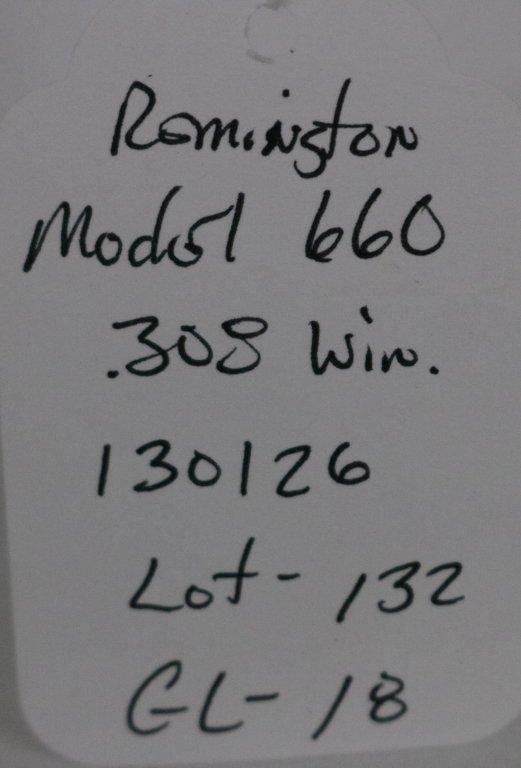 Remington
Model 660
.308 Win.
130126
Lot- 132
GL- 18